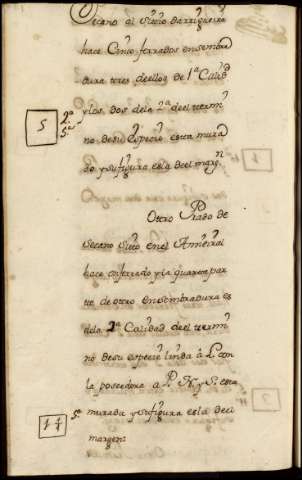 Secano al Sitio da rrigueira
hace Cinco ferrados en sembra
dura tres de ellos de 1ª Calid
y los dos de la 2ª de el termº
no de su Especie esta mura
do y su figura es la de el margn
5 2ª 5ª
Otro Prado de
Secano Sito en el Ameiral
hace un ferrado y la quarta par
te de otro en sembradura es
de la 2ª Calidad de el termº
no de su especie linda à L. con
la poseedora a P. N. y S. esta
murada y su figura es la de el
margen
5ª